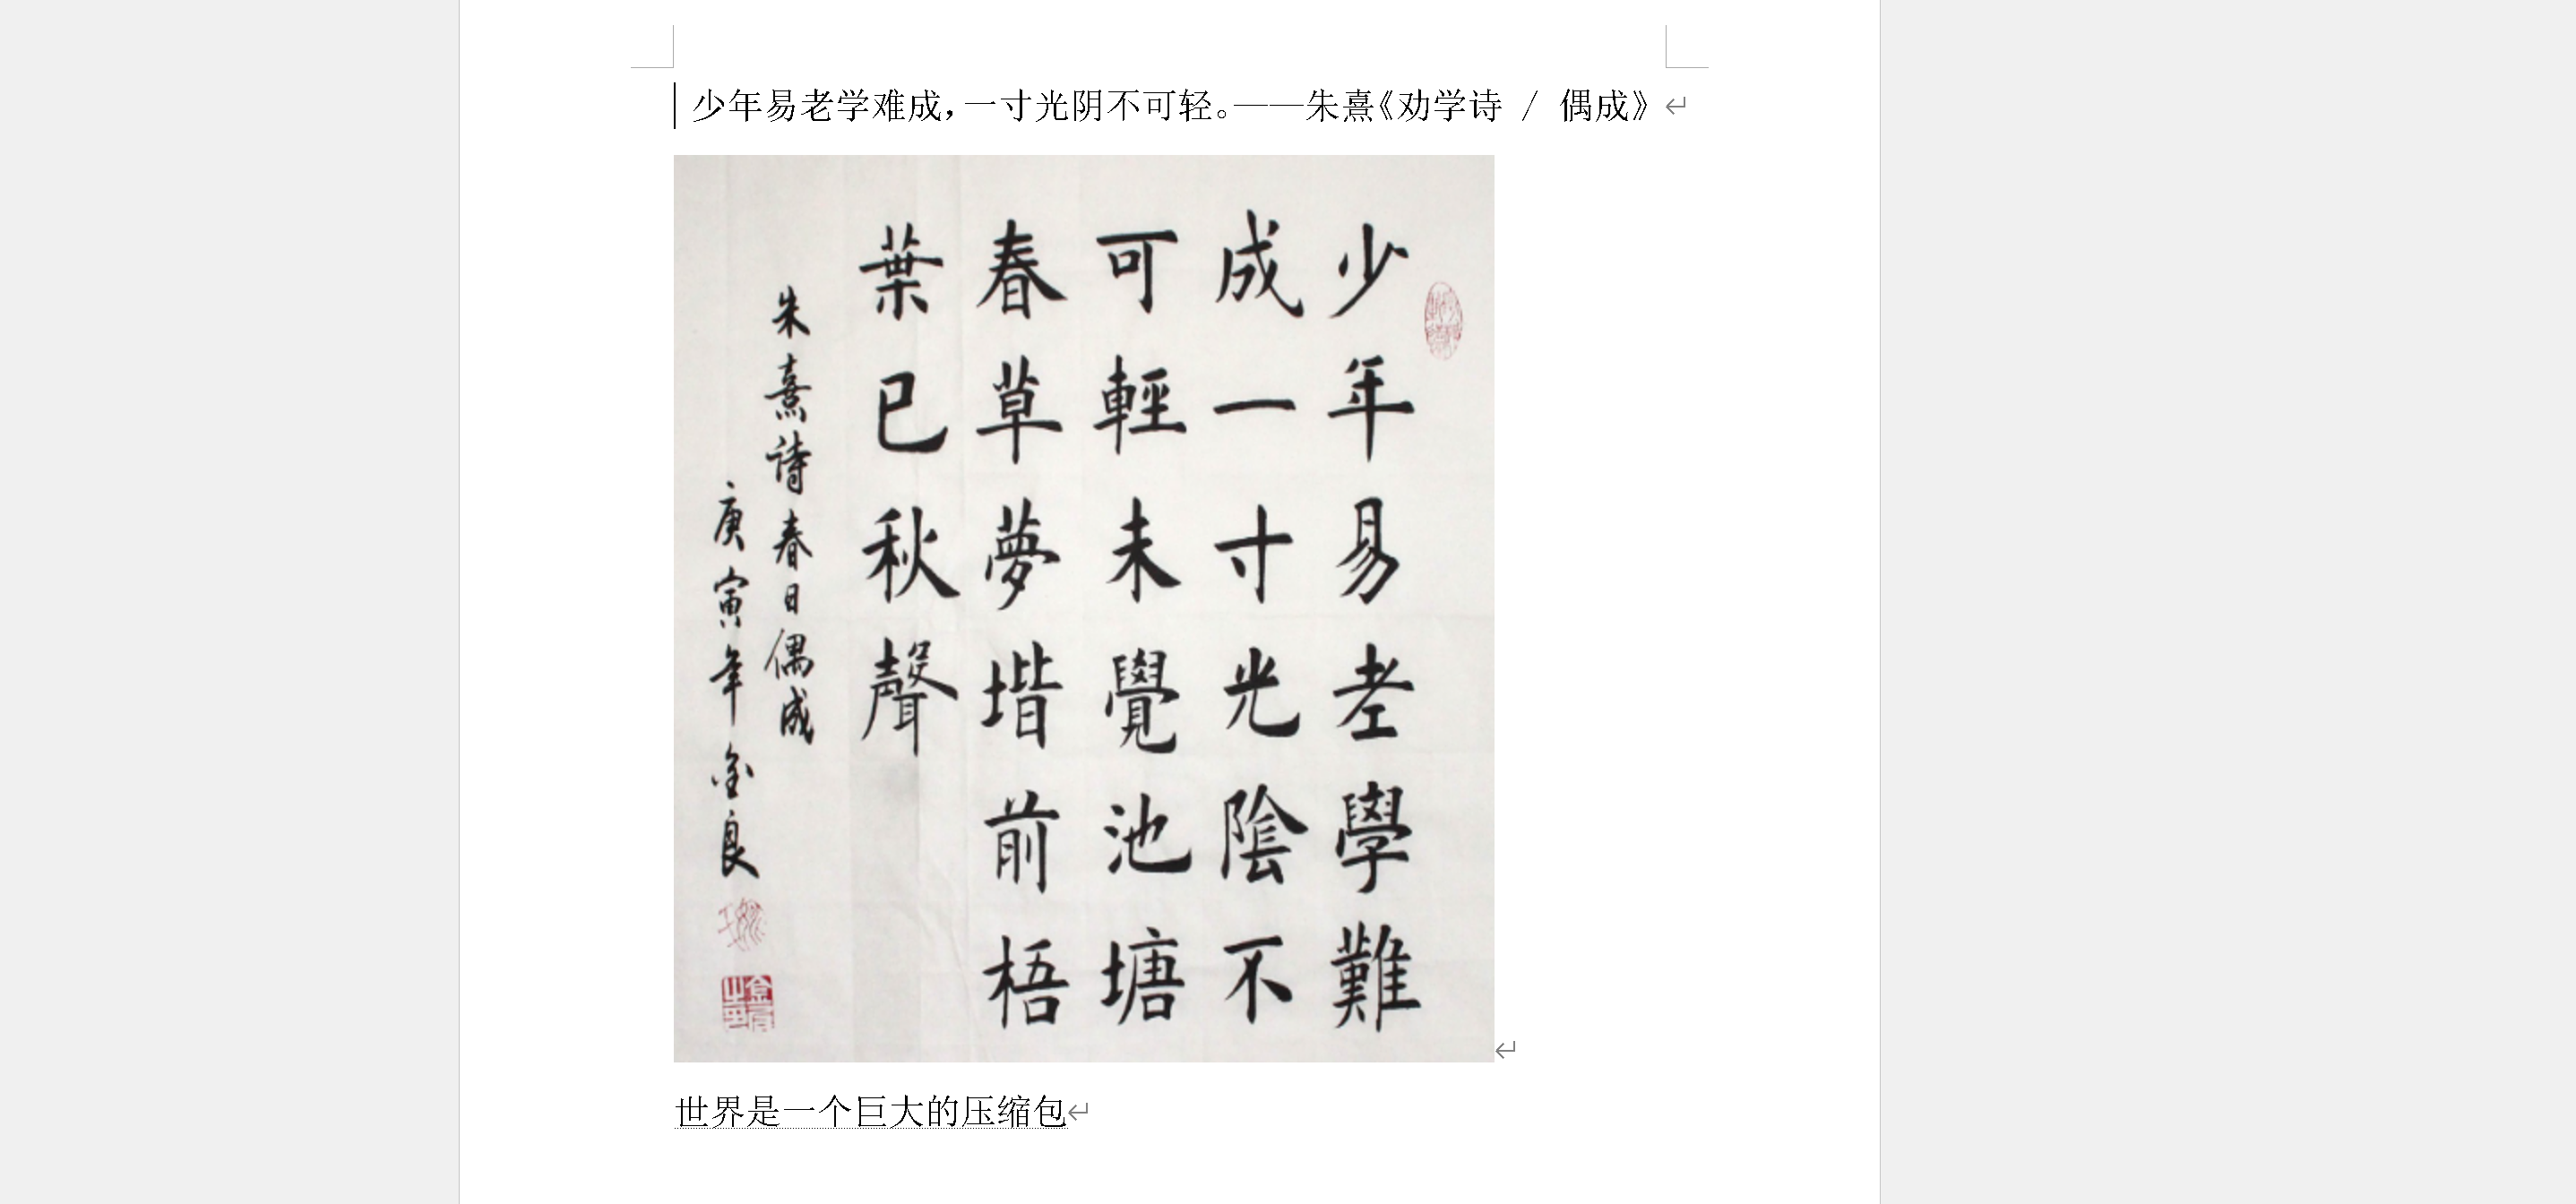 少年易老学难成，一寸光阴不可轻。——朱熹《劝学诗 / 偶成》
少年易老學難
成一寸光陰不
可輕未覺池塘
春草夢堦前梧
葉已秋聲
朱熹詩春日偶成
庚寅年金良
世界是一个巨大的压缩包